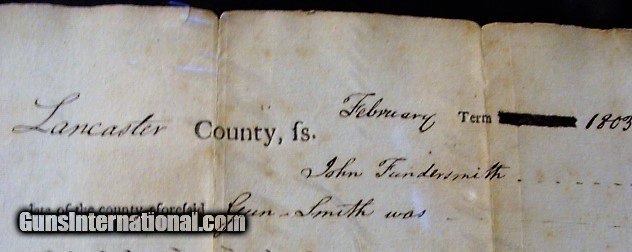 Lancaster County, ſs. February Term 1803
John Fundersmith
of the county aforesaid Gun-Smith was
GunsInternational.com